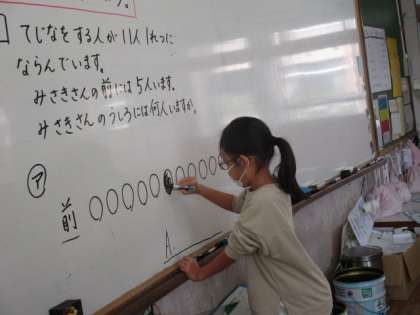 てじなをする人が11人1れつに
ならんでいます。
みさきさんの前には5人います。
みさきさんのうしろには何人いますか。
ア
前
A.